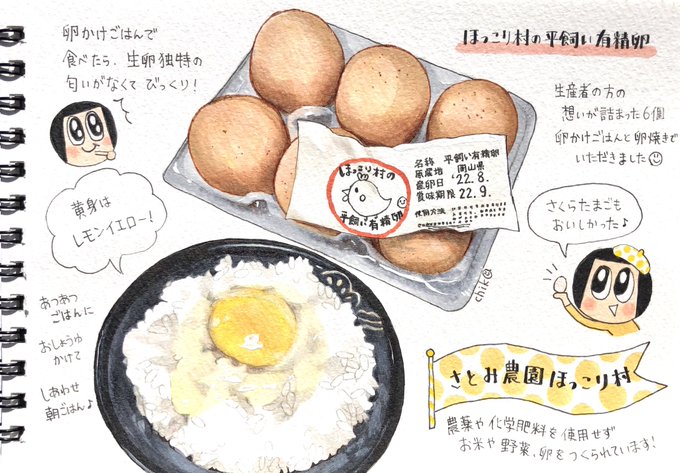 卵かけごはんで
食べたら、生卵独特の
匂いがなくてびっくり!
ほっこり村の平飼い有精卵
生産者の方の
想いが詰まった6個
卵かけごはんと卵焼きで
いただきました
ほっこり村の
平飼い有精卵
名称 平飼い有精卵
原産地 岡山県
産卵日 '22.8.
賞味期限 22.9.
使用方法
黄身は
レモンイエロー!
さくらたまごも
おいしかった♪
chik
あつあつ
ごはんに
おしょうゆ
かけて
しあわせ
朝ごはん♪
さとみ農園ほっこり村
農薬や化学肥料を使用せず
お米や野菜、卵をつくられています!